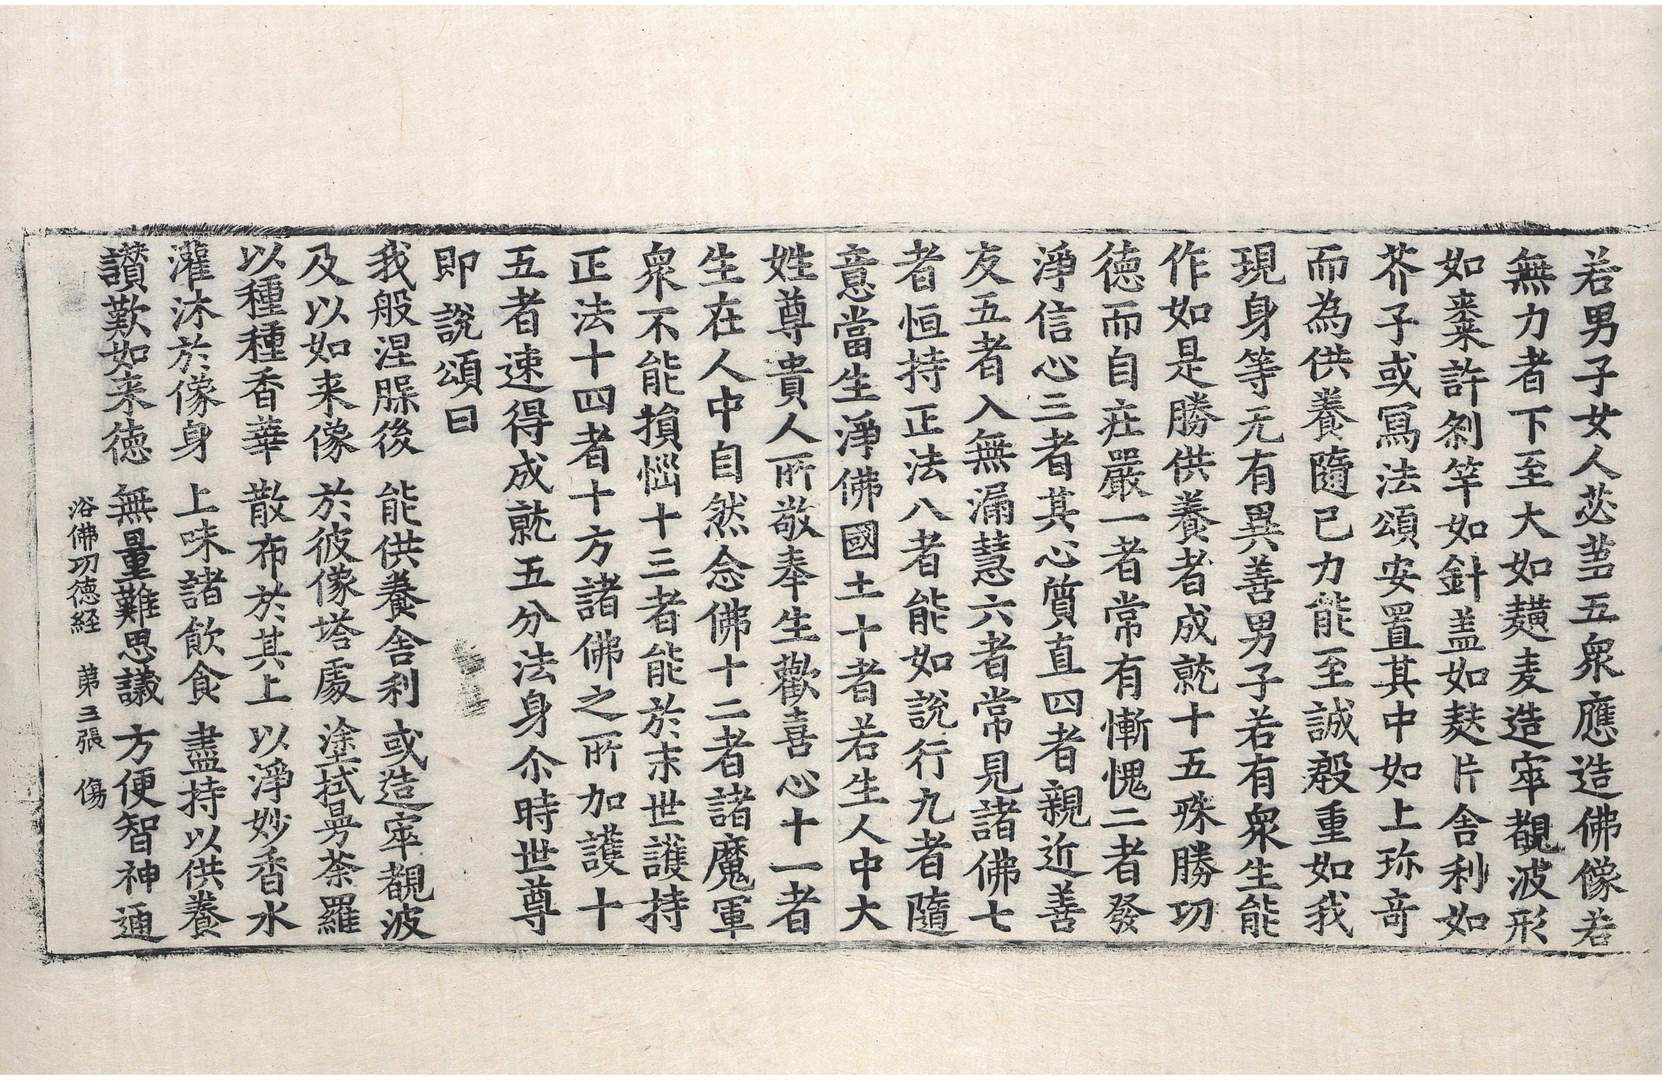 若男子女人苾芻五眾應造佛像若
無力者下至大如䵃麦造窣覩波形
如棗許刹竿如針盖如麩片舍利如
芥子或寫法頌安置其中如上珎奇
而為供養隨己力能至誠殷重如我
現身等无有異善男子若有眾生能
作如是勝供養者成就十五殊勝功
德而自莊嚴一者常有慚愧二者發
淨信心三者其心質直四者親近善
友五者入無漏慧六者常見諸佛七
者恒持正法八者能如說行九者隨
意當生淨佛國土十者若生人中大
姓尊貴人所敬奉生歡喜心十一者
生在人中自然念佛十二者諸魔軍
眾不能損惱十三者能於末世護持
正法十四者十方諸佛之所加護十
五者速得成就五分法身尒時世尊
即說頌曰
我般涅槃後 能供養舍利 或造窣覩波
及以如来像 於彼像塔處 塗拭曼荼羅
以種種香華 散布於其上 以淨妙香水
灌沐於像身 上味諸飲食 盡持以供養
讃歎如来德 無量難思議 方便智神通
浴佛功德経 苐三張 傷